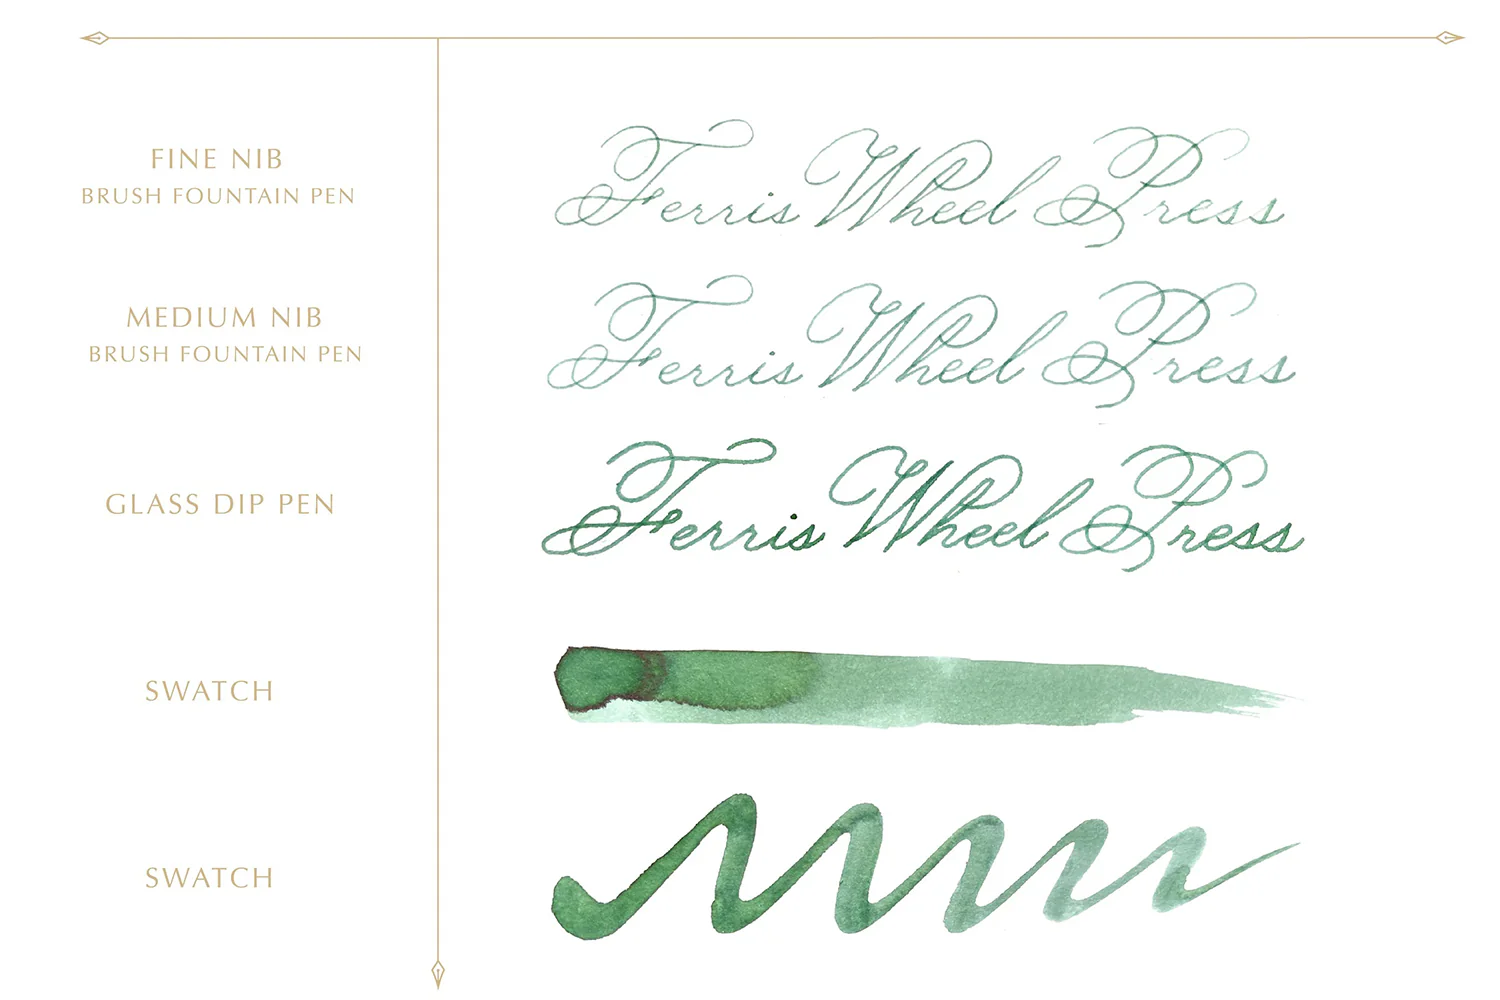 FINE NIB
BRUSH FOUNTAIN PEN
Ferris Wheel Press
MEDIUM NIB
BRUSH FOUNTAIN PEN
Ferris Wheel Press
GLASS DIP PEN
Ferris Wheel Press
SWATCH
SWATCH